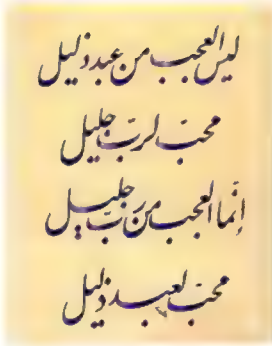 ليس العجب من عبد ذليل
محبّ لربّ جليل
إنّما العجب من ربّ جليل
محبّ لعبد ذليل